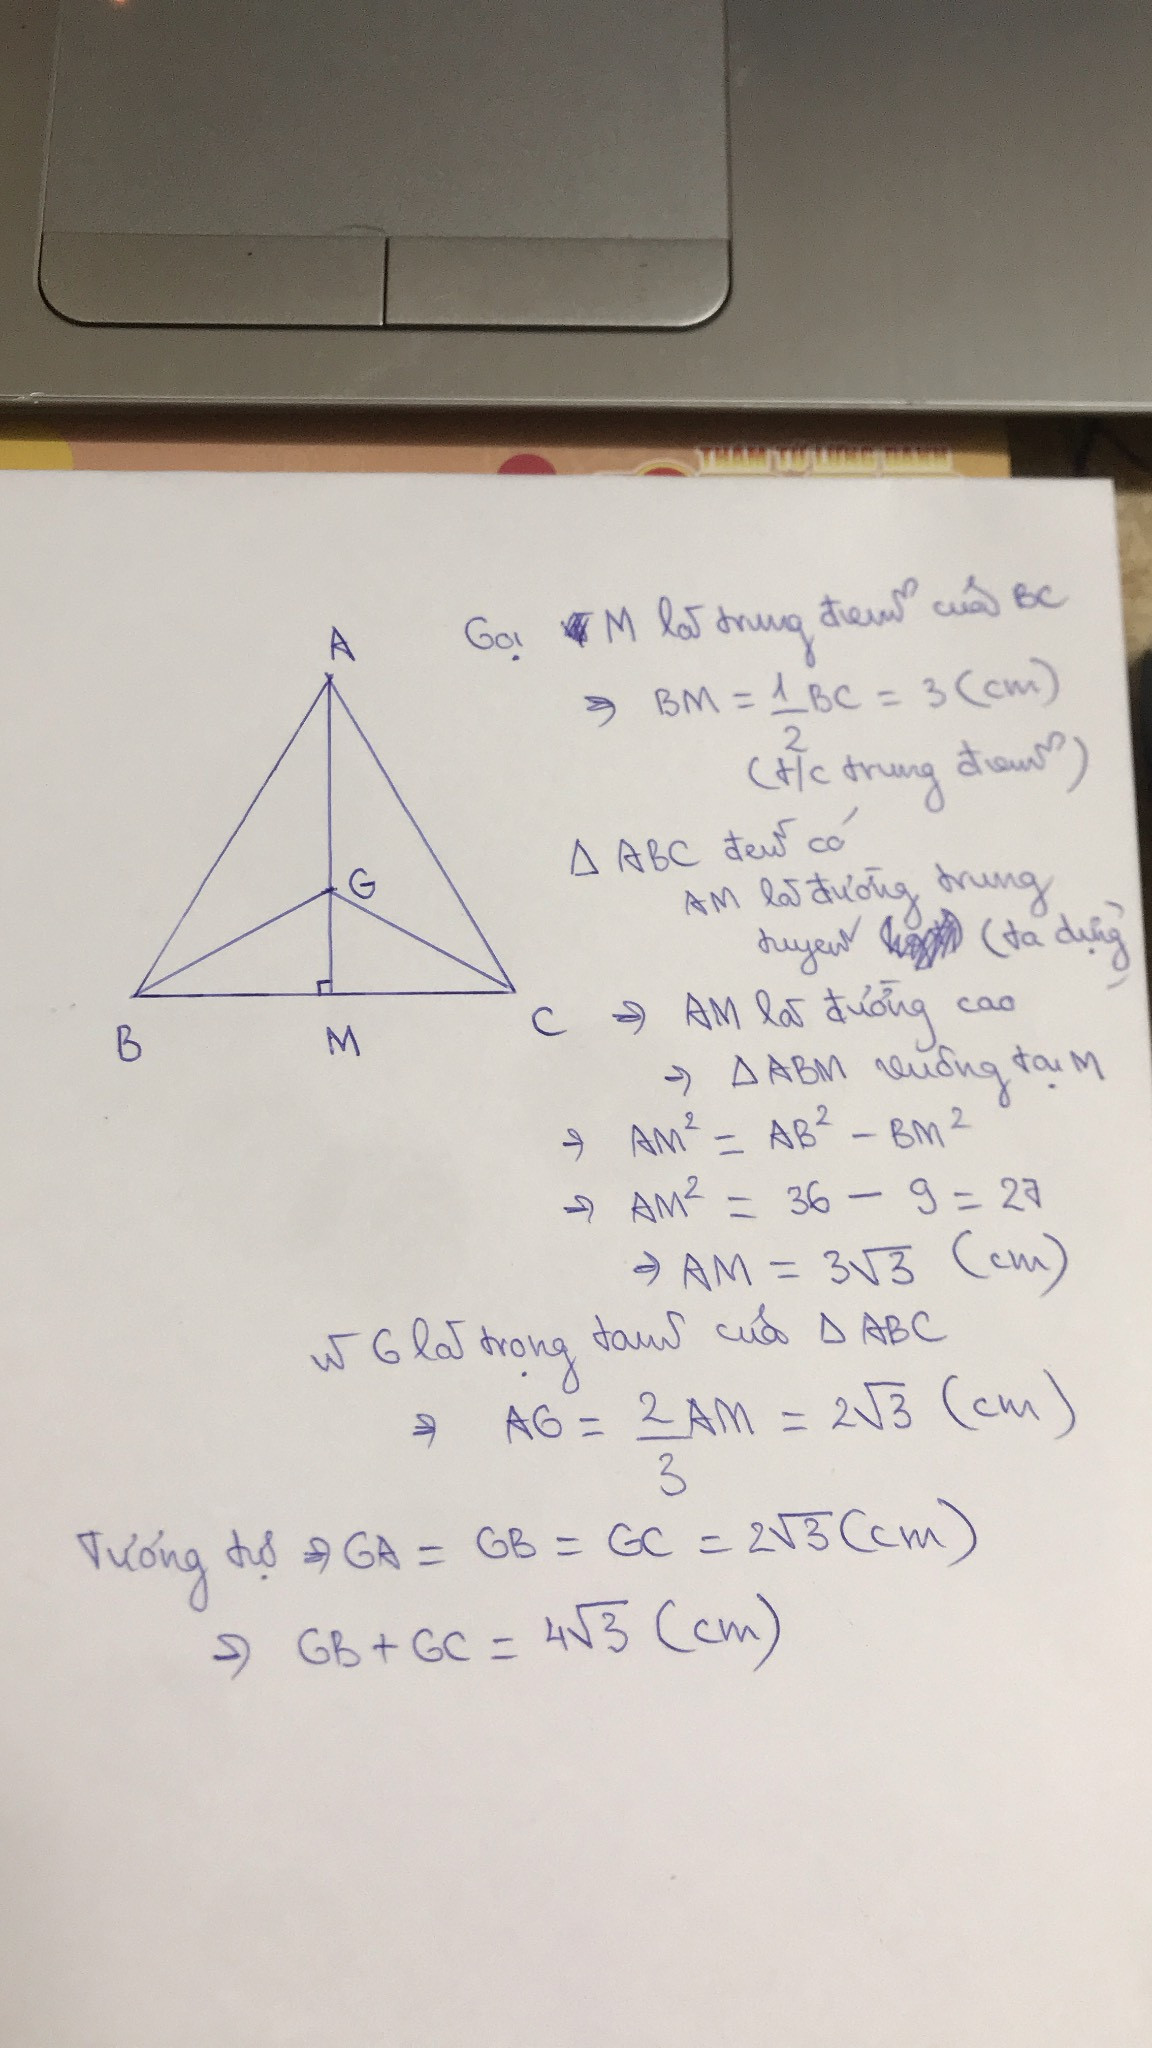 THÁM TỬ LỪNG DANH
A
G
B
M
C
Gọi M là trung điểm của BC
⇒ BM = 1/2 BC = 3 (cm)
(t/c trung điểm)
Δ ABC đều có
AM là đường trung
tuyến (ta dựng)
⇒ AM là đường cao
⇒ Δ ABM vuông tại M
⇒ AM² = AB² - BM²
⇒ AM² = 36 - 9 = 27
⇒ AM = 3√3 (cm)
vì G là trọng tâm của Δ ABC
⇒ AG = 2/3 AM = 2√3 (cm)
Tương tự ⇒ GA = GB = GC = 2√3 (cm)
⇒ GB + GC = 4√3 (cm)